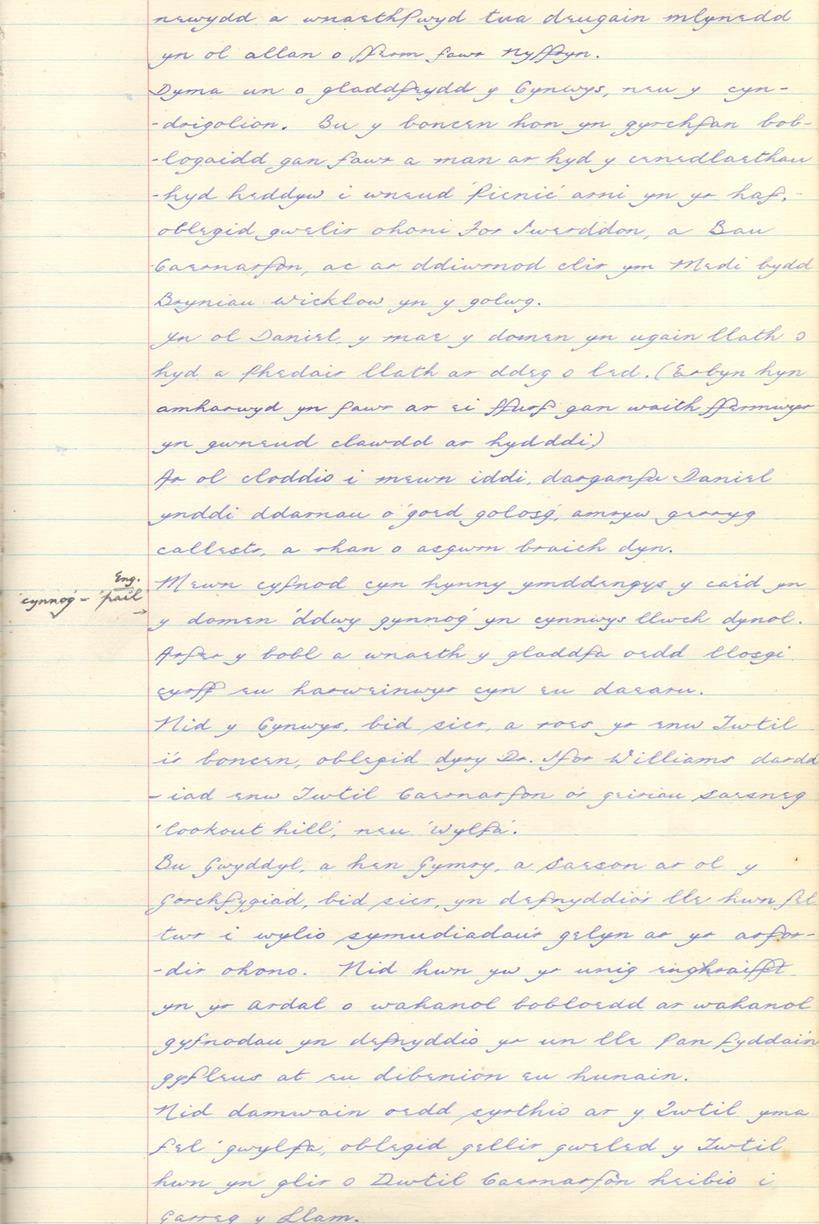 newydd a wnaethpwyd tua deugain mlynedd
yn ol allan o fferm fawr Nyffryn.
Dyma un o gladdfeydd y Cynwys, neu y cyn-
-drigolion. Bu y boncen hon yn gyrchfan bob-
-logaidd gan fawr a man ar hyd y cenedlaethau
-hyd heddyw i wneud 'Picnic' arni yn yr haf,-
oblegid gwelir ohoni For Iwerddon, a Bau
Caernarfon, ac ar ddiwrnod clir ym Medi bydd
Bryniau Wicklow yn y golwg.
Yn ol Daniel, y mae y domen yn ugain llath o
hyd a Phedair llath ar ddeg o led. (Erbyn hyn
amharwyd yn fawr ar ei ffurf gan waith ffermwyr
yn gwneud clawdd ar hydddi)
Ar ol cloddio i mewn iddi, darganfu Daniel
ynddi ddarnau o 'goed golosg', amryw gerryg
callestr, a rhan o asgwrn braich dyn.
Mewn cyfnod cyn hynny ymddengys y caed yn
Eng.
'cynnog' = 'pail' →
y domen 'ddwy gynnog' yn cynnwys llwch dynol.
Arfer y bobl a wnaeth y gladdfa oedd llosgi
cyrff eu harweinwyr cyn eu daearu.
Nid y Cynwys, bid sicr, a roes yr enw Twtil
i'r boncen, oblegid dyry Dr. Ifor Williams dardd
-iad enw Twtil Caernarfon o'r geiriau Saesneg
'lookout hill', neu 'Wylfa'.
Bu Gwyddyl, a hen Gymry, a Saeson ar ol y
Gorchfygiad, bid sicr, yn defnyddio'r lle hwn fel
twr i wylio symudiadau'r gelyn ar yr arfor-
-dir ohono. Nid hwn yw yr unig enghraifft
yn yr ardal o wahanol bobloedd ar wahanol
gyfnodau yn defnyddio yr un lle Pan fyddai'n
gyfleus at eu dibenion eu hunain.
Nid damwain oedd syrthio ar y Twtil yma
fel 'gwylfa', oblegid gellir gweled y Twtil
hwn yn glir o Dwtil Caernarfon heibio i
Garreg y Llam.